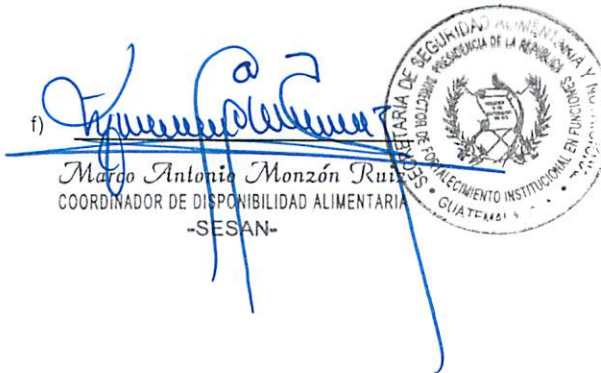 f)
Marco Antonio Monzón Ruiz
COORDINADOR DE DISPONIBILIDAD ALIMENTARIA
-SESAN-
SECRETARIA DE SEGURIDAD ALIMENTARIA Y
PRESIDENCIA DE LA REPUBLICA
DIRECCION DE FORTALECIMIENTO INSTITUCIONAL EN FUNCIONES
GUATEMALA